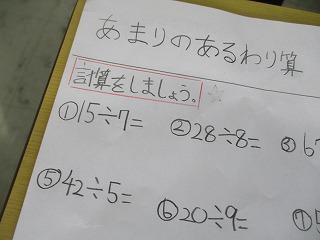 あまりのあるわり算
計算をしましょう。
①15÷7= ②28÷8= ③6
⑤42÷5= ⑥20÷9= ⑦